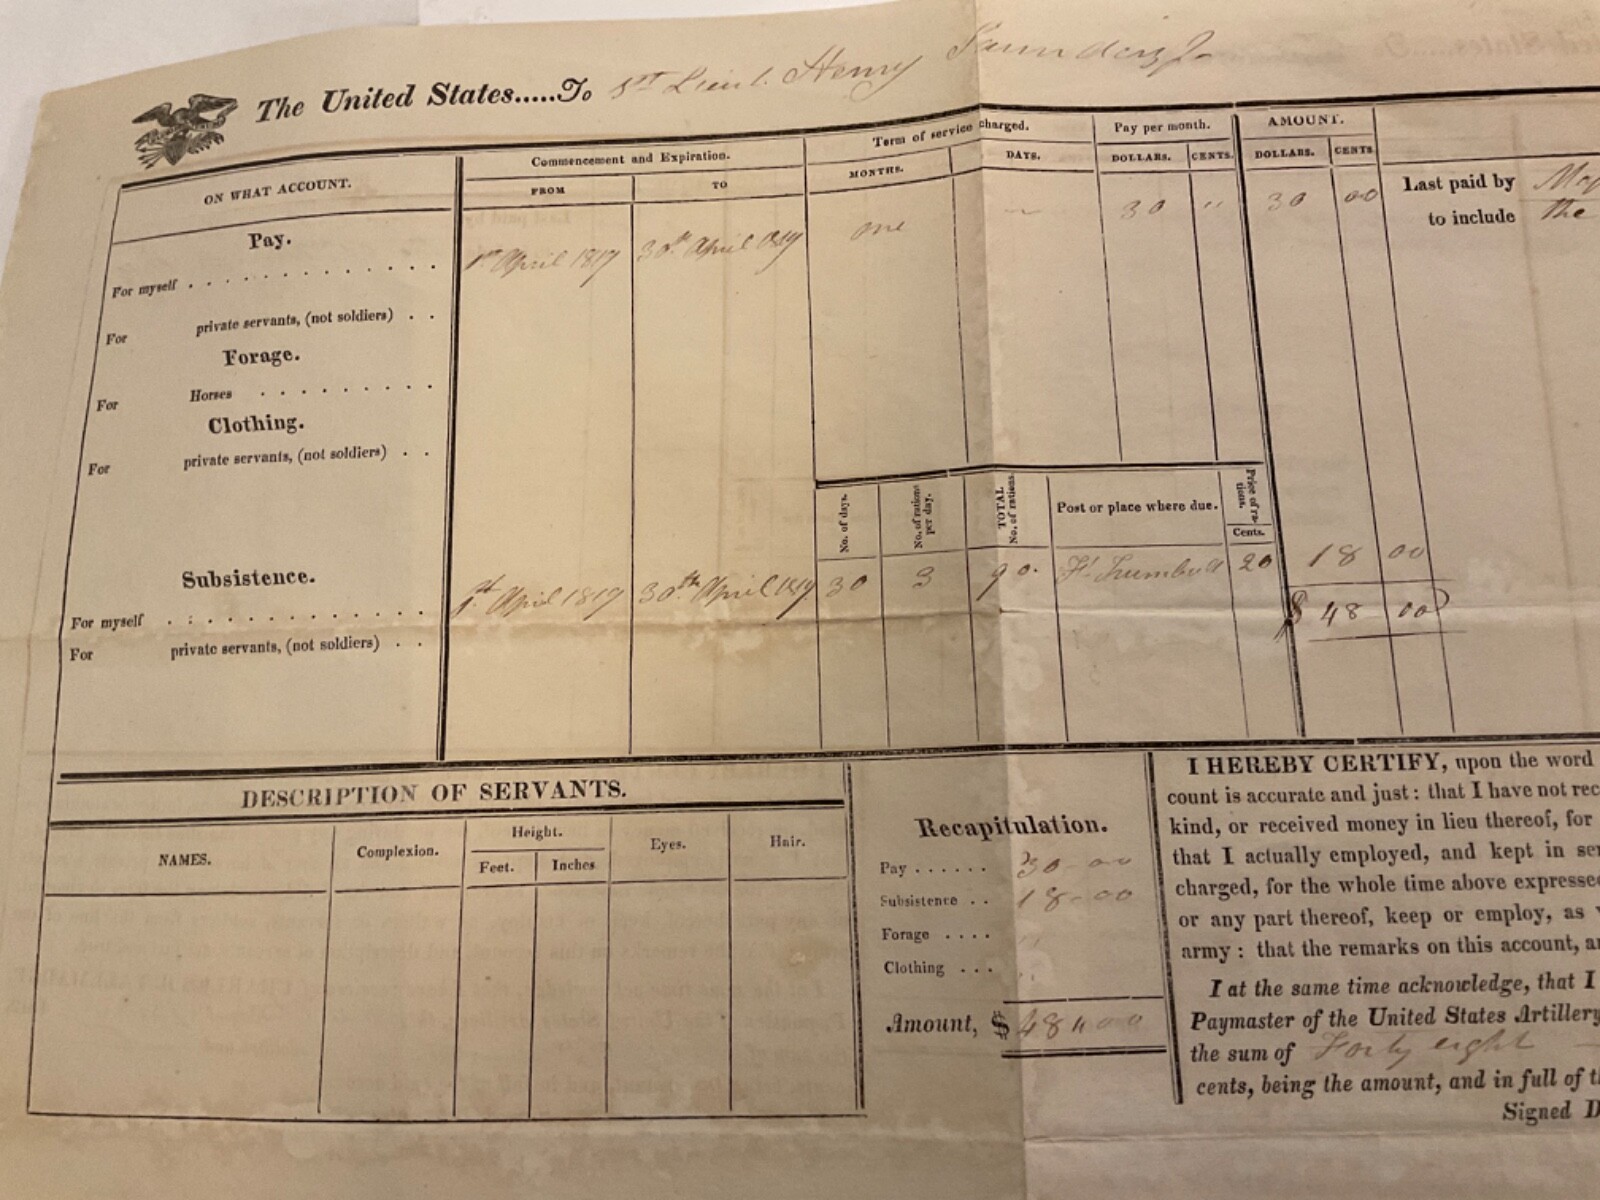 The United States.....To 1st Lieut. Henry Saunders
ON WHAT ACCOUNT.
Commencement and Expiration.
FROM
TO
Term of service charged.
MONTHS.
DAYS.
Pay per month.
DOLLARS.
CENTS.
AMOUNT.
DOLLARS.
CENTS
Last paid by
to include the
Pay.
For myself . . . . . . . . . . . 1st April 1819 30th April 1819 one 30 " 30 00
For private servants, (not soldiers) . .
Forage.
For Horses . . . . . . . . .
Clothing.
For private servants, (not soldiers) . .
No. of days.
No. of rations per day.
TOTAL No. of rations.
Post or place where due.
Price of rations.
Cents.
Subsistence.
For myself . . . . . . . . . . . . 1st April 1819 30th April 1819 30 3 90. Ft. Trumbull 20 18 00
$ 48 00
For private servants, (not soldiers) . .
DESCRIPTION OF SERVANTS.
NAMES.
Complexion.
Height.
Feet.
Inches
Eyes.
Hair.
Recapitulation.
Pay . . . . . . 30-00
Subsistence . . 18-00
Forage . . . . "
Clothing . . . "
Amount, $ 48 " 00
I HEREBY CERTIFY, upon the word
count is accurate and just: that I have not rec
kind, or received money in lieu thereof, for
that I actually employed, and kept in ser
charged, for the whole time above expresse
or any part thereof, keep or employ, as
army: that the remarks on this account, a
I at the same time acknowledge, that I
Paymaster of the United States Artillery
the sum of Forty eight
cents, being the amount, and in full of t
Signed D